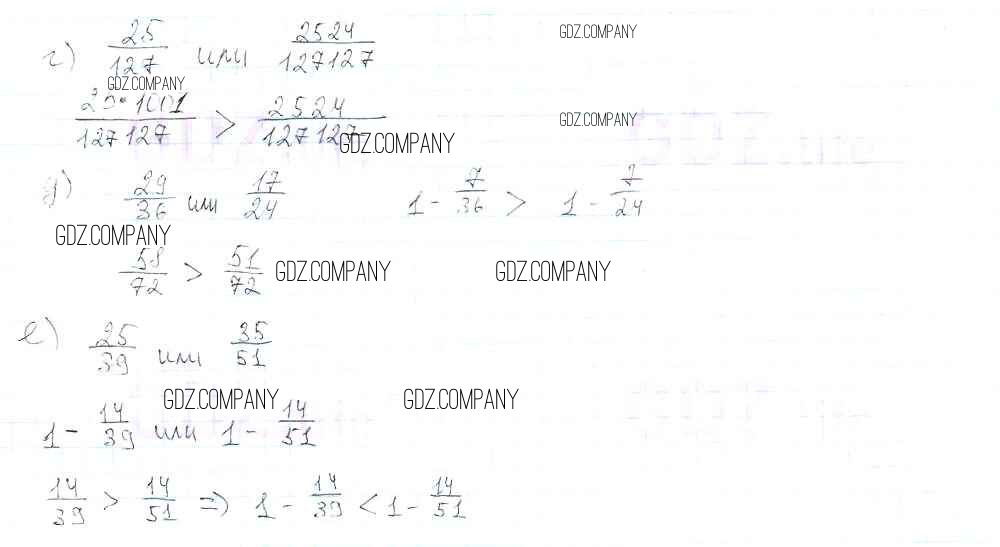 г) 25/127 или 2524/127127
GDZ.COMPANY
GDZ.COMPANY
25·1001/127127 > 2524/127127
GDZ.COMPANY
GDZ.COMPANY
д) 29/36 или 17/24 1 - 7/36 > 1 - 7/24
GDZ.COMPANY
58/72 > 51/72
GDZ.COMPANY GDZ.COMPANY
е) 25/39 или 35/51
GDZ.COMPANY GDZ.COMPANY
1 - 14/39 или 1 - 14/51
14/39 > 14/51 => 1 - 14/39 < 1 - 14/51